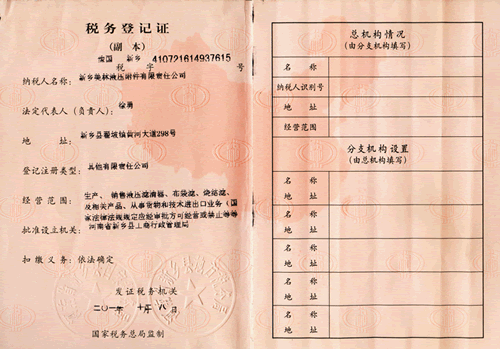 税务登记证
(副 本)
国 新乡 410721614937615
税 字 号
纳税人名称： 新乡 林液压附件有限责任公司
法定代表人（负责人）： 徐
地 址： 新乡县翟坡镇 河大道298号
登记注册类型： 其他有限责任公司
经营范围： 生产、销售液压滤清器、布袋滤、烧结滤、
及相关产品、从事货物和技术进出口业务（国
家法律法规规定应经审批方可经营或禁止
批准设立机关： 河南省新乡县工商行政管理局
扣缴义务： 依法确定
发证税务机关
二〇一 年 十 月 八 日
国家税务总局监制
总机构情况
(由分支机构填写)
名 称
纳税人识别号
地 址
经营范围
分支机构设置
(由总机构填写)
名 称
地 址
名 称
地 址
名 称
地 址
名 称
地 址